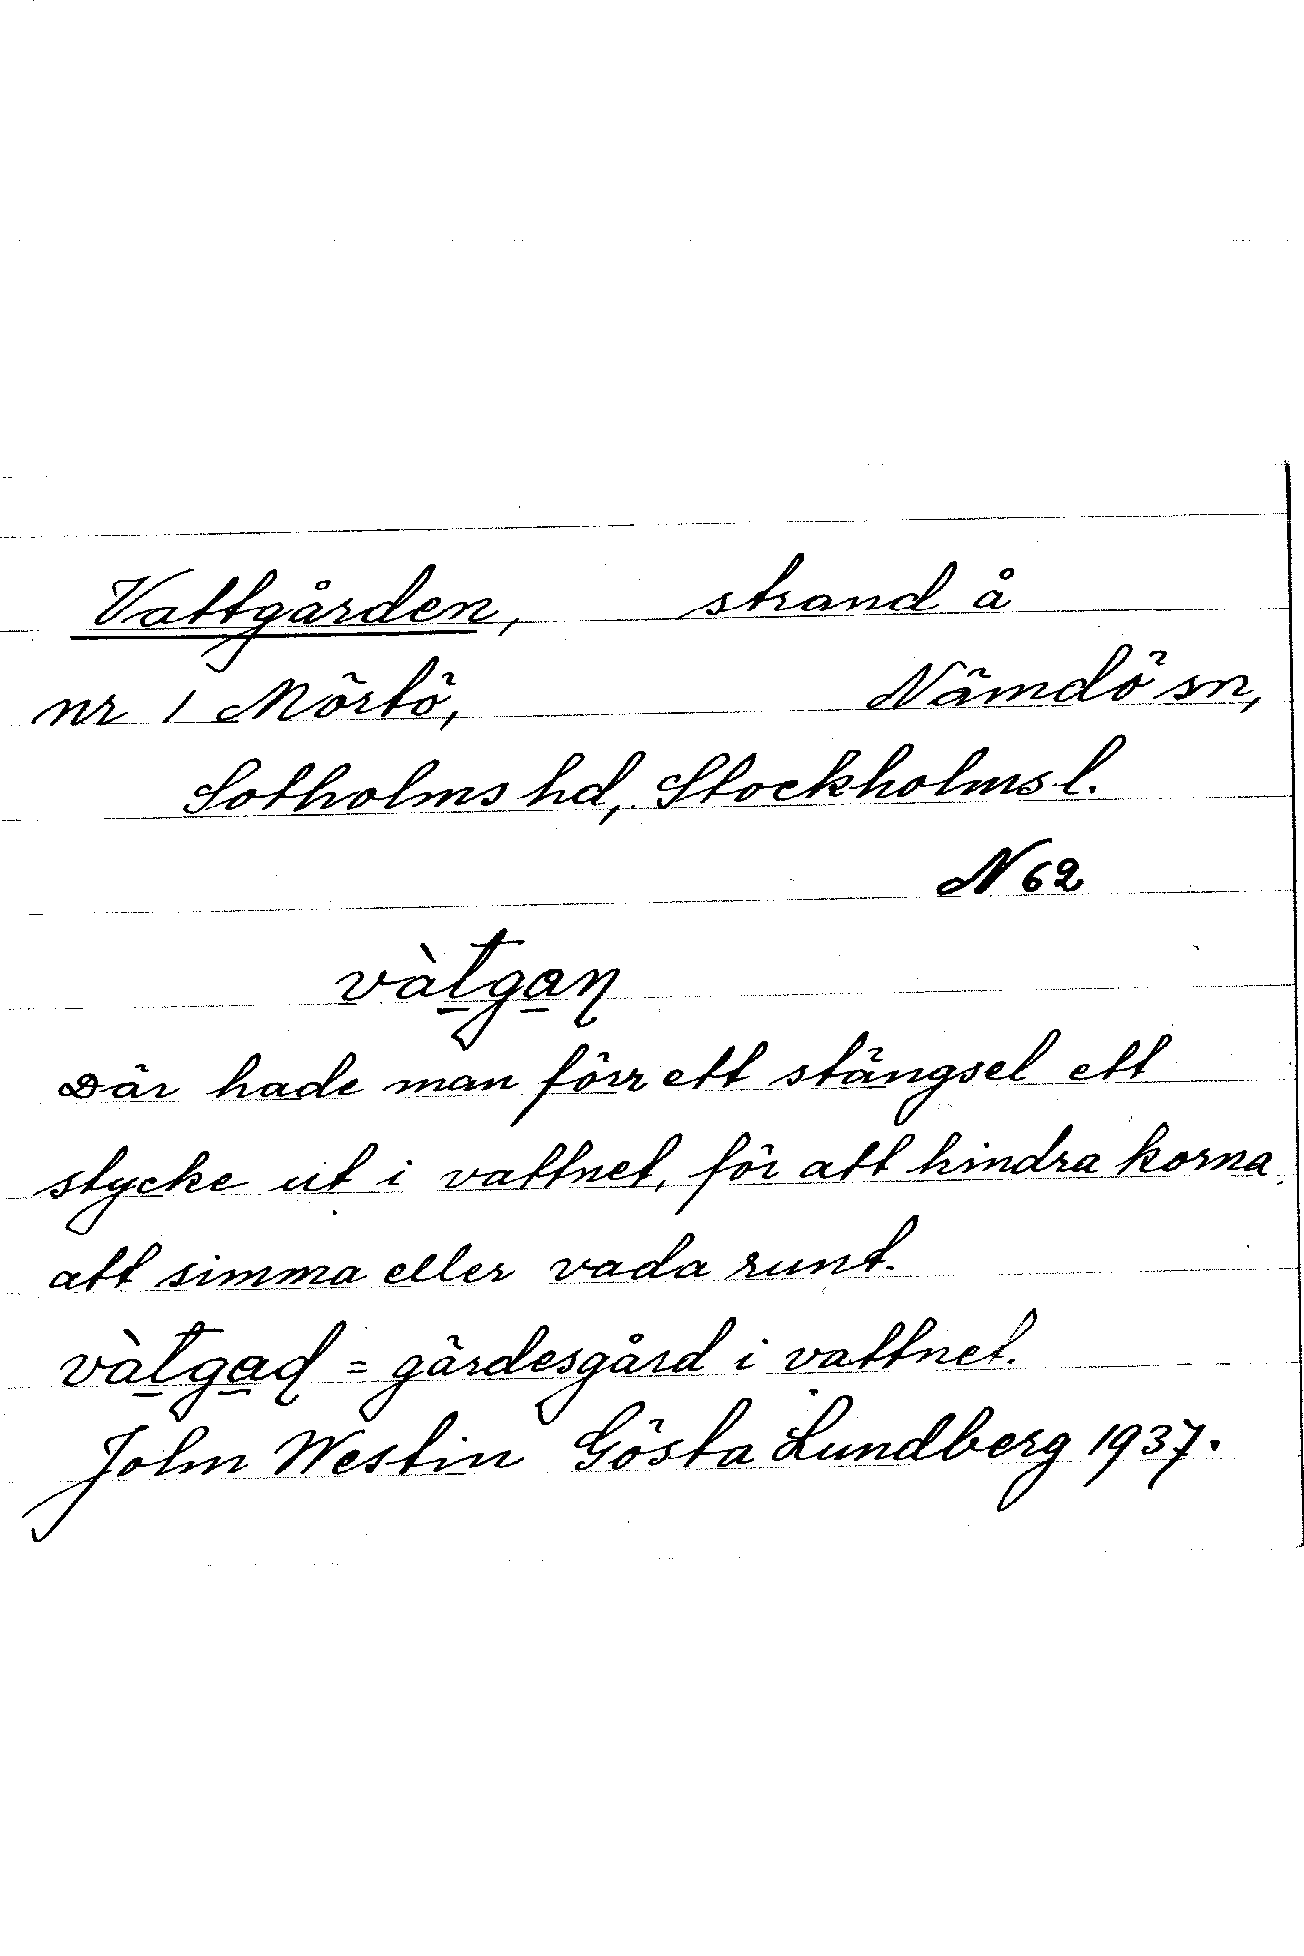 Vattgården, strand å
nr 1 Mörtö, Nämdö sn,
Sotholms hd, Stockholms l.
N 62
vàtgaɳ
Där hade man förr ett stängsel ett
stycke ut i vattnet, för att hindra korna
att simma eller vada runt.
vàtgaɖ = gärdesgård i vattnet.
John Westin Gösta Lundberg 1937.